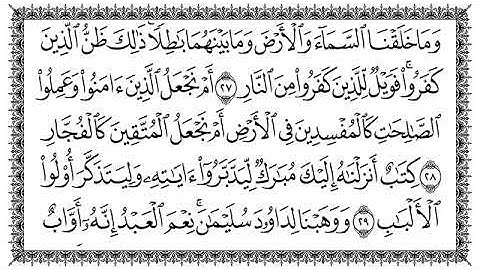 وَمَا خَلَقْنَا ٱلسَّمَآءَ وَٱلْأَرْضَ وَمَا بَيْنَهُمَا بَٰطِلًا ذَٰلِكَ ظَنُّ ٱلَّذِينَ
كَفَرُوا۟ فَوَيْلٌ لِّلَّذِينَ كَفَرُوا۟ مِنَ ٱلنَّارِ ٢٧ أَمْ نَجْعَلُ ٱلَّذِينَ ءَامَنُوا۟ وَعَمِلُوا۟
ٱلصَّٰلِحَٰتِ كَٱلْمُفْسِدِينَ فِى ٱلْأَرْضِ أَمْ نَجْعَلُ ٱلْمُتَّقِينَ كَٱلْفُجَّارِ
٢٨ كِتَٰبٌ أَنزَلْنَٰهُ إِلَيْكَ مُبَٰرَكٌ لِّيَدَّبَّرُوٓا۟ ءَايَٰتِهِۦ وَلِيَتَذَكَّرَ أُو۟لُوا۟
ٱلْأَلْبَٰبِ ٢٩ وَوَهَبْنَا لِدَاوُۥدَ سُلَيْمَٰنَ ۚ نِعْمَ ٱلْعَبْدُ إِنَّهُۥٓ أَوَّابٌ